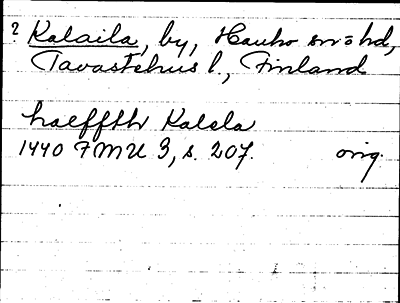 ? Kalaila, by, Hauho sn o hd,
Tavastehus l., Finland
haeffth Kalela
1440 FMU 3, s. 207. orig.